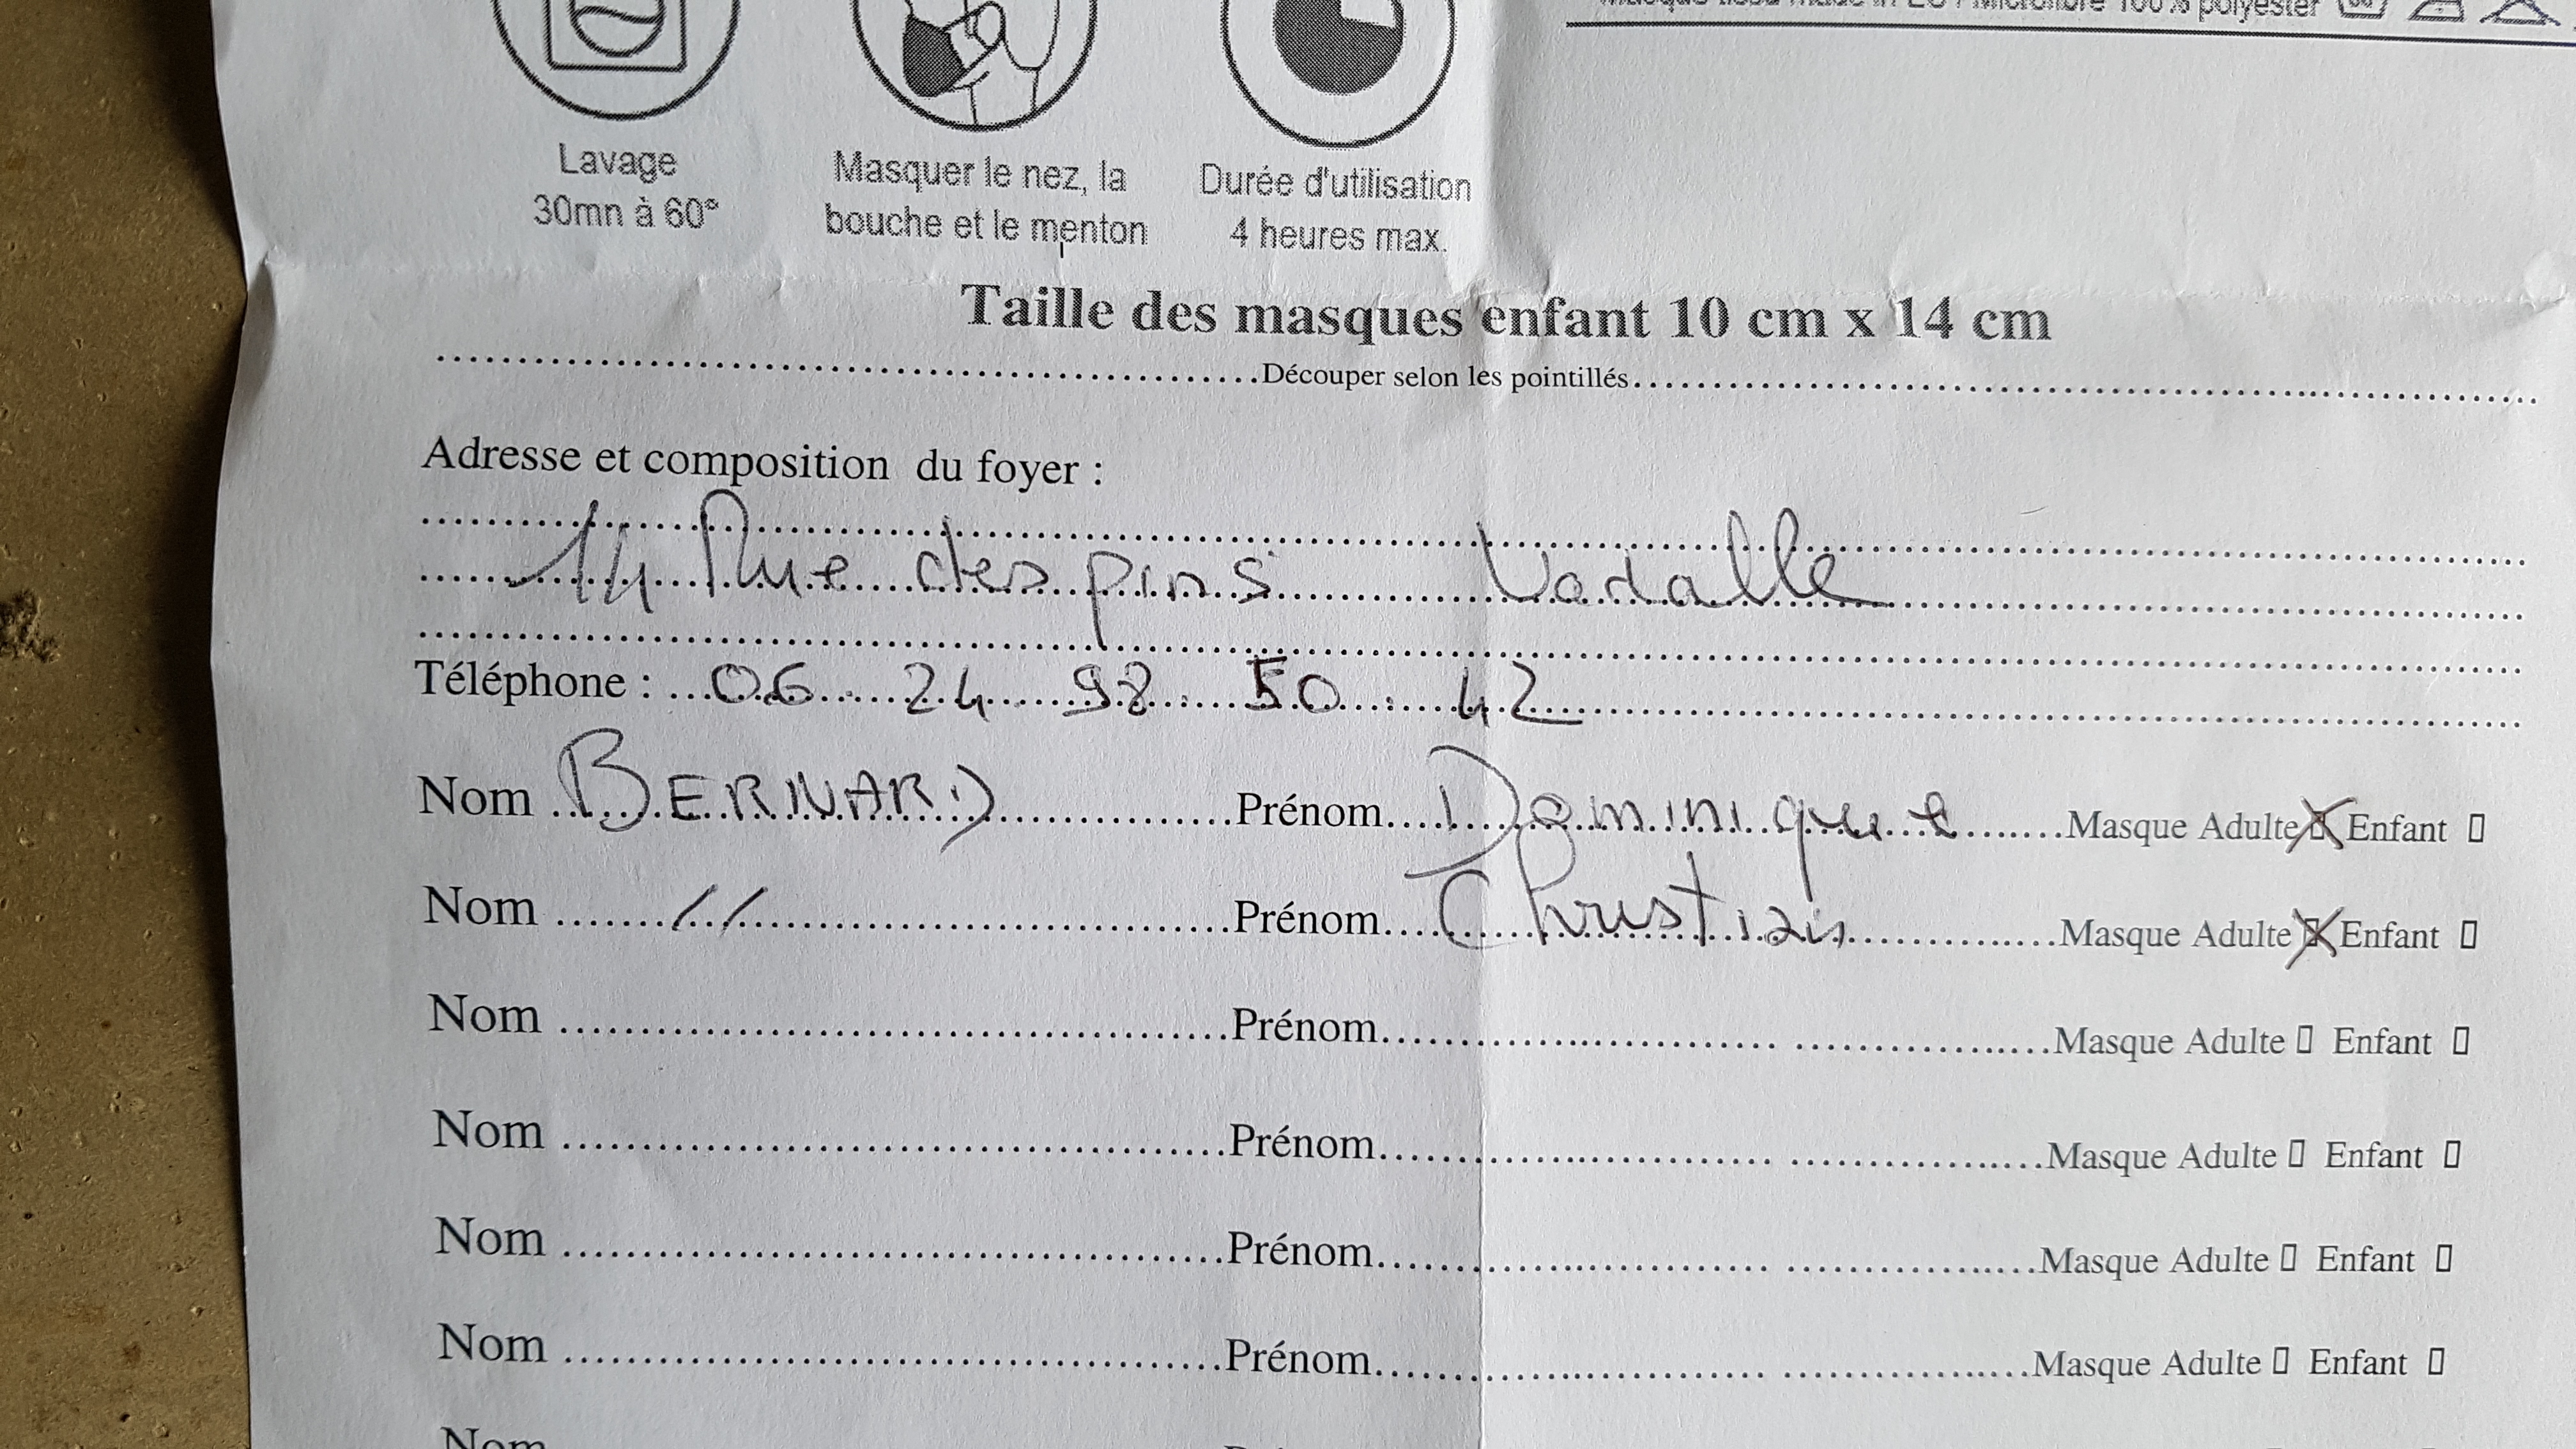 Masque tissu made in EU / Microfibre 100% polyester
Lavage
30mn à 60°
Masquer le nez, la
bouche et le menton
Durée d'utilisation
4 heures max.
Taille des masques enfant 10 cm x 14 cm
Découper selon les pointillés
Adresse et composition du foyer :
14 Rue des pins Vadalle
Téléphone : 06 24 98 50 42
Nom BERNARD Prénom Dominique Masque Adulte Enfant
Nom // Prénom Christian Masque Adulte Enfant
Nom Prénom Masque Adulte Enfant
Nom Prénom Masque Adulte Enfant
Nom Prénom Masque Adulte Enfant
Nom Prénom Masque Adulte Enfant
Nom